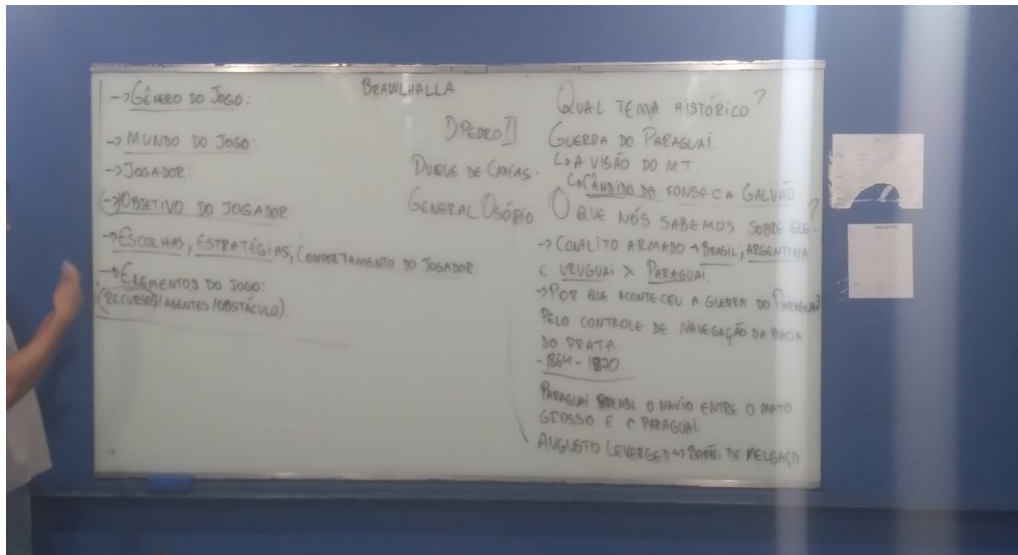 → GÊNERO DO JOGO:
→ MUNDO DO JOGO:
→ JOGADOR:
→ OBJETIVO DO JOGADOR
→ ESCOLHAS, ESTRATÉGIAS, COMPORTAMENTO DO JOGADOR:
→ ELEMENTOS DO JOGO:
(RECURSOS/AGENTES/OBSTÁCULO)
BRAWLHALLA
D.PEDRO II
DUQUE DE CAXIAS.
GENERAL OSÓRIO
QUAL TEMA HISTÓRICO?
GUERRA DO PARAGUAI.
↳ A VISÃO DO MT.
↳ CÂNDIDO DA FONSECA GALVÃO
O QUE NÓS SABEMOS SOBRE ELE?
→ CONFLITO ARMADO → BRASIL, ARGENTINA
E URUGUAI X PARAGUAI.
→ POR QUE ACONTECEU A GUERRA DO PARAGUAI?
PELO CONTROLE DE NAVEGAÇÃO DA BACIA
DO PRATA.
- 1864 - 1870
PARAGUAI PRENDE O NAVIO ENTRE O MATO
GROSSO E O PARAGUAI.
AUGUSTO LEVERGER → BARÃO DE MELGAÇO